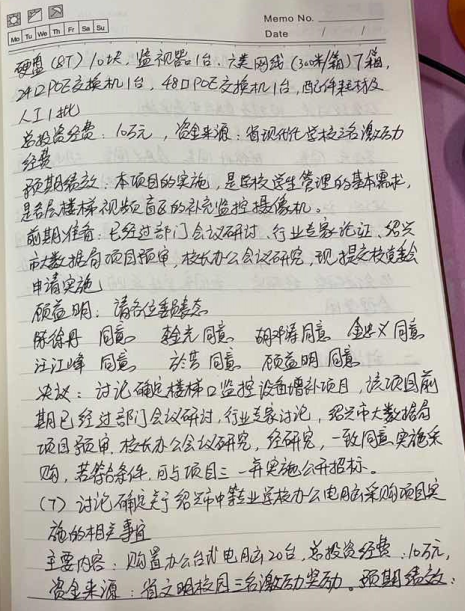 Memo No.
Mo Tu We Th Fr Sa Su
Date / /
硬盘(8T)10块,监视器1台,六类网线(300米/箱)7箱,
24口POE交换机1台,48口POE交换机1台,配件耗材及
人工1批
总投资经费:10万元,资金来源:省现代化学校3名激励
经费
预期绩效:本项目的实施,是学校学生管理的基本需求,
是各层楼梯视频盲区的补充监控摄像机。
前期准备:已经过部门会议研讨,行业专家论证,绍兴
市大数据局项目预审,校长办公会议研究,现提交校党委会
申请实施
顾益明:请各位委员表态
陈徐丹 同意 韩光 同意 胡 同意 金忠义 同意
汪江峰 同意 同意 顾益明 同意
决议:讨论确定楼梯口监控设备增补项目,该项目前
期已经过部门会议研讨,行业专家讨论,绍兴市大数据局
项目预审,校长办公会议研究,经研究,一致同意实施采
购,若符合条件,可与项目三一并实施公开招标。
(7)讨论确定关于绍兴市中等专业学校办公电脑采购项目实
施的相关事宜
主要内容:购置办公台式电脑20台,总投资经费:10万元,
资金来源:省文明校园3名激励奖励。预期绩效: